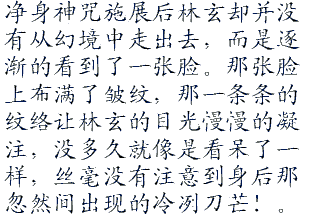 净身神咒施展后林玄却并没
有从幻境中走出去，而是逐
渐的看到了一张脸。那张脸
上布满了皱纹，那一条条的
纹络让林玄的目光慢慢的凝
注，没多久就像是看呆了一
样，丝毫没有注意到身后那
忽然间出现的冷冽刀芒！。